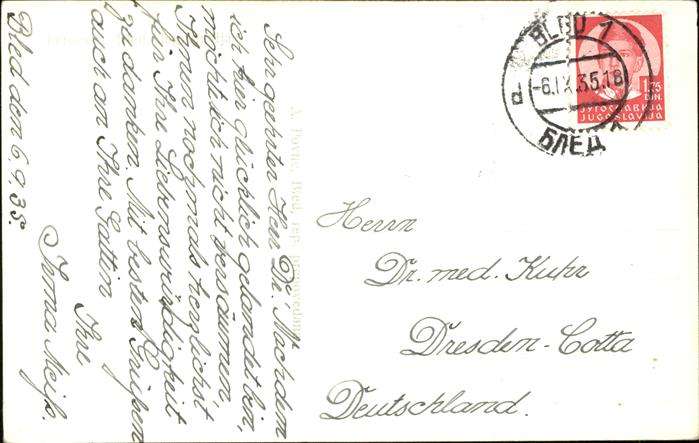 Sehr geehrter Herr Dr.! Nachdem
ich hier glücklich gelandet bin,
möchte ich nicht versäumen,
Ihnen nochmals herzlichst
für Ihre Liebenswürdigkeit
zu danken. Mit besten Grüßen
auch an Ihre Gattin
Ihre
Irma Meiß.
Bled den 6.9.35.
BLED 1
-6.IX.35.18
d
БЛЕД
1.75
DIN.
ЈУГОСЛАВИЈА
JUGOSLAVIJA
Herrn
Dr. med. Kuhr
Dresden-Cotta
Deutschland.
Bled,